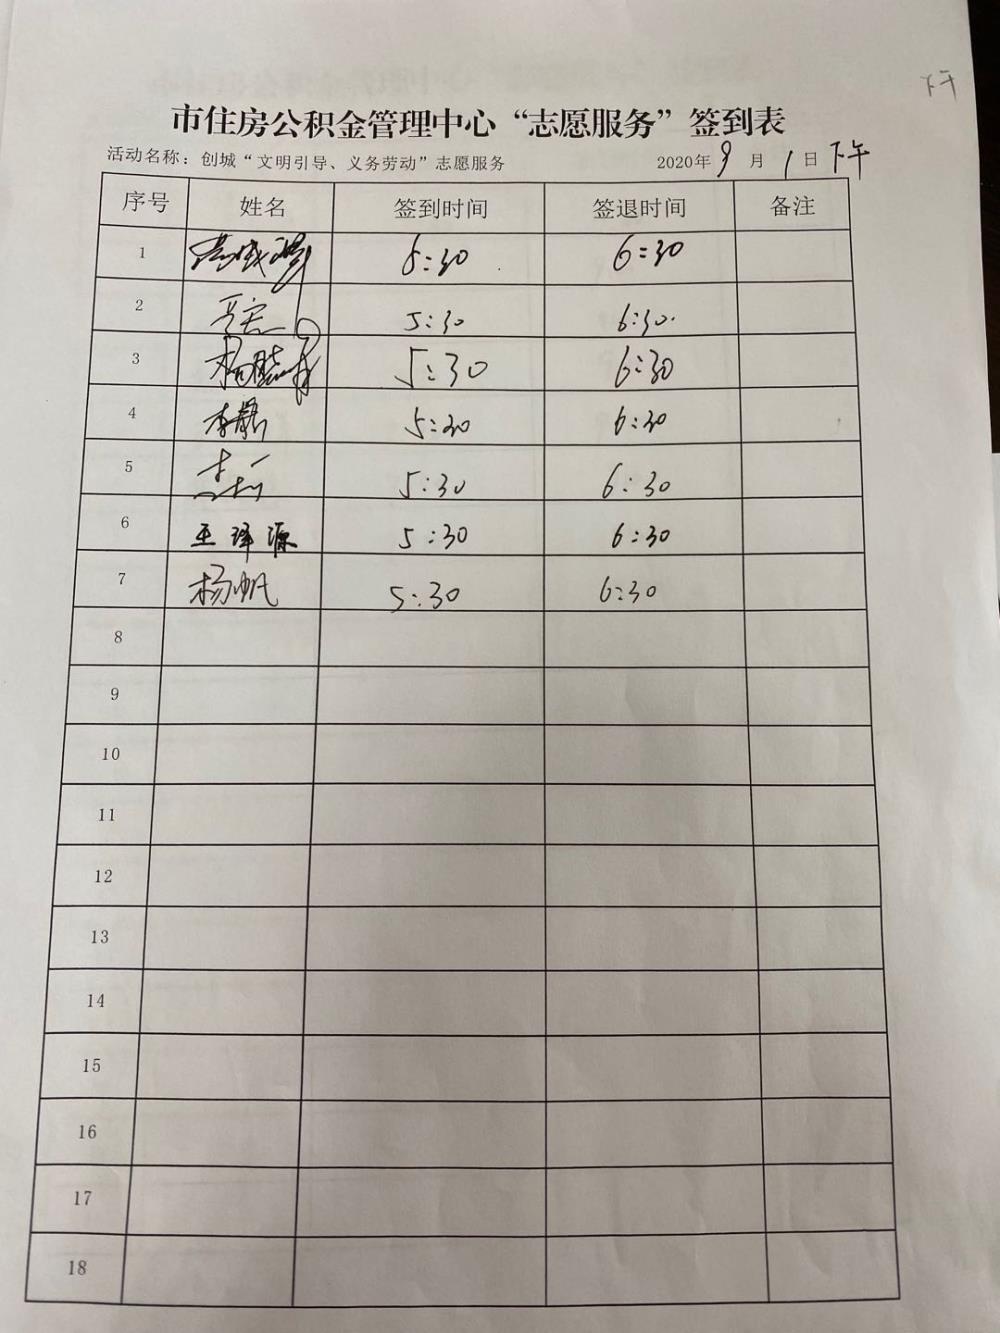 下午
市住房公积金管理中心“志愿服务”签到表
活动名称：创城“文明引导、义务劳动”志愿服务 2020年9月1日 下午
序号 姓名 签到时间 签退时间 备注
1 6:30
2 5:30 6:30
3 5:30 6:30
4 李静 5:30 6:30
5 5:30 6:30
6 王译源 5:30 6:30
7 杨帆 5:30 6:30
8
9
10
11
12
13
14
15
16
17
18